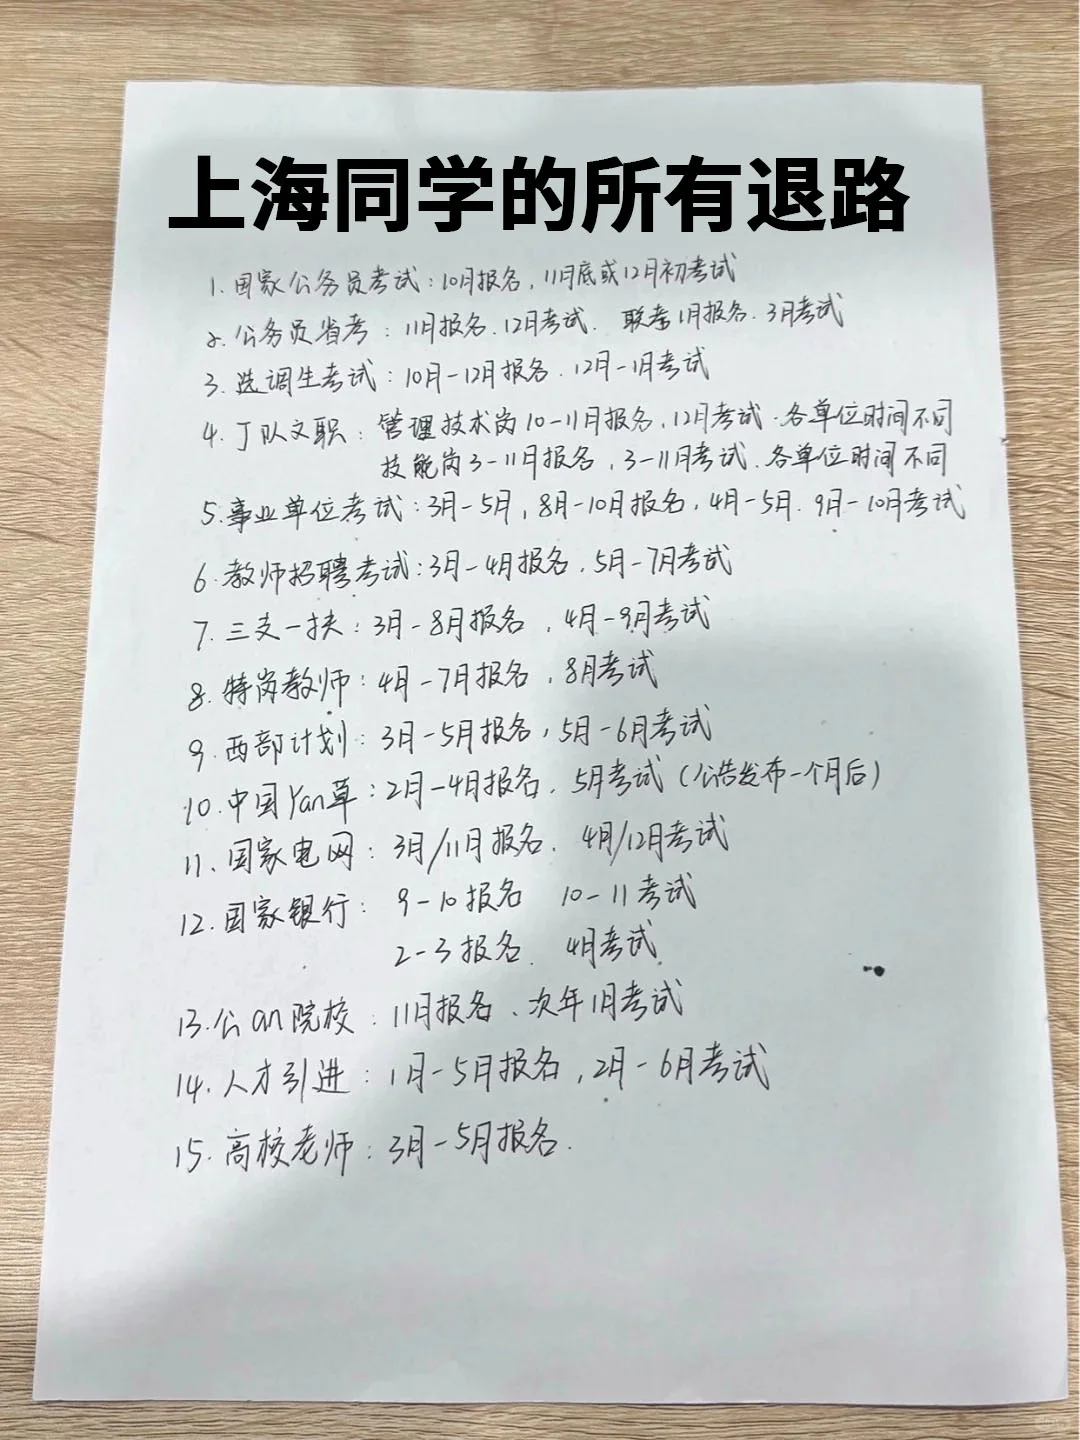 上海同学的所有退路
1.国家公务员考试:10月报名,11月底或12月初考试
2.公务员省考:11月报名.12月考试. 联考1月报名.3月考试
3.选调生考试:10月-12月报名.12月-1月考试
4.丁队文职:管理技术岗10-11月报名,12月考试.各单位时间不同
技能岗3-11月报名,3-11月考试.各单位时间不同
5.事业单位考试:3月-5月,8月-10月报名,4月-5月.9月-10月考试
6.教师招聘考试:3月-4月报名.5月-7月考试
7.三支一扶:3月-8月报名,4月-9月考试
8.特岗教师:4月-7月报名,8月考试
9.西部计划:3月-5月报名,5月-6月考试
10.中国Yan草:2月-4月报名.5月考试(公告发布一个月后)
11.国家电网:3月/11月报名. 4月/12月考试
12.国家银行: 9-10报名 10-11考试
2-3报名. 4月考试.
13.公an院校:11月报名、次年1月考试
14.人才引进:1月-5月报名,2月-6月考试
15.高校老师:3月-5月报名.